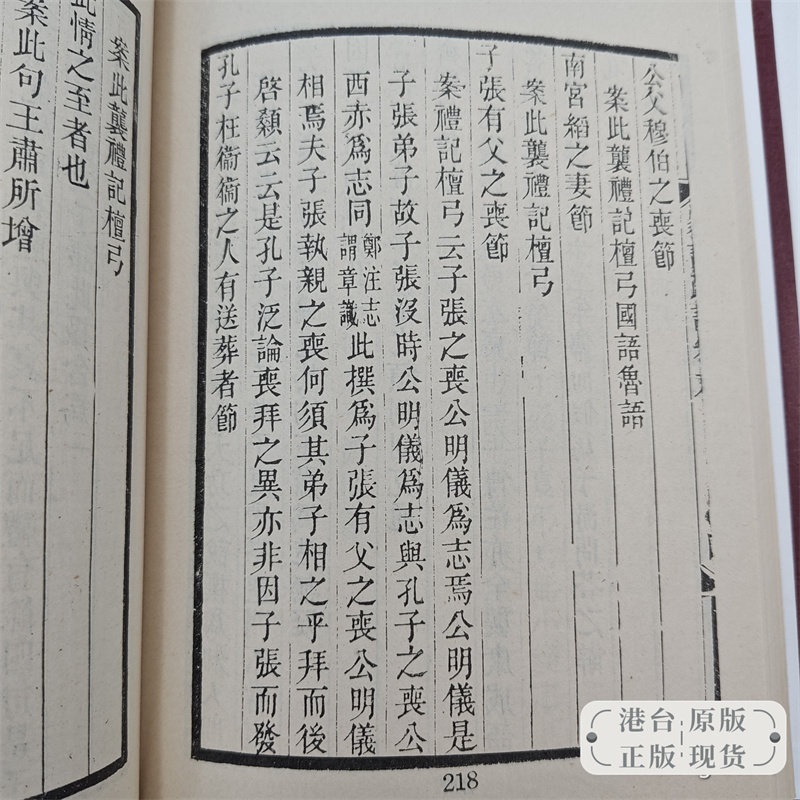 公父穆伯之喪節
案此襲禮記檀弓國語魯語
南宮縚之妻節
案此襲禮記檀弓
子張有父之喪節
案禮記檀弓云子張之喪公明儀爲志焉公明儀是
子張弟子故子張沒時公明儀爲志與孔子之喪公
西赤爲志同鄭注志謂章識此撰爲子張有父之喪公明儀
相焉夫子張執親之喪何須其弟子相之乎拜而後
啓顙云云是孔子泛論喪拜之異亦非因子張而發
孔子在衞衞之人有送葬者節
218
案此襲禮記檀弓
此情之至者也
案此句王肅所增
港台 原版
正版 现货